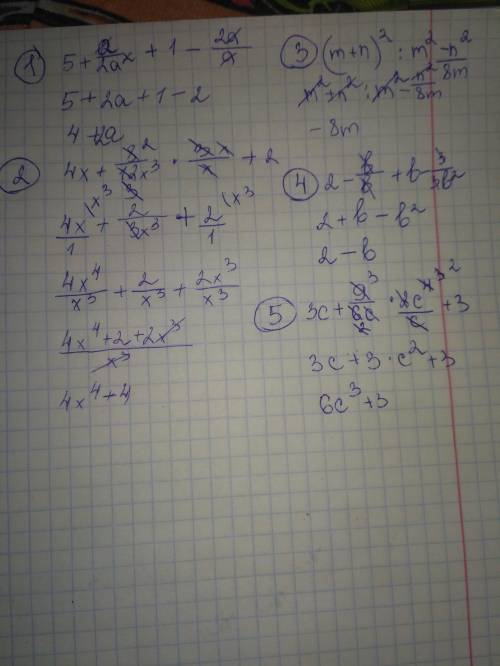 ① 5 + a/2a x + 1 - 2a/a
5 + 2a + 1 - 2
4 + 2a
② 4x + x²/x2x³ · x/x + 2
4x/1 + 2/3x³ + 2/1
4x⁴/x³ + 2/x³ + 2x³/x³
4x⁴+2+2x³/x³
4x⁴+4
③ (m+n)² : m²-n²/8m
m²+n² : m²-n²/8m
-8m
④ 2 - b/b + b 3/3b²
2 + b - b²
2 - b
⑤ 3c + 9³/6c2 · 2c/c + 3
3c + 3 · c² + 3
6c³ + 3